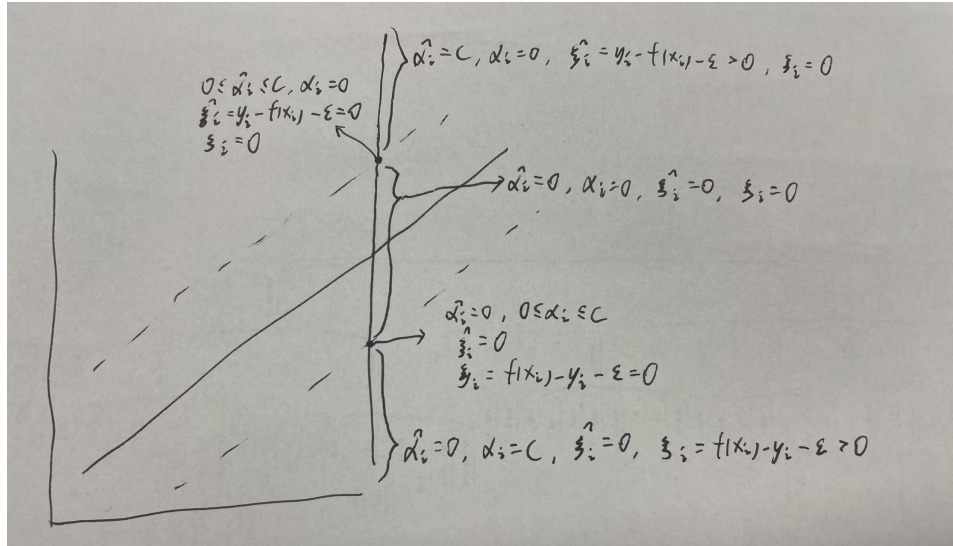 α̂ᵢ=C, αᵢ=0, ξ̂ᵢ=yᵢ-f(xᵢ)-ε>0, ξᵢ=0
0≤α̂ᵢ≤C, αᵢ=0
ξ̂ᵢ=yᵢ-f(xᵢ)-ε=0
ξᵢ=0
α̂ᵢ=0, αᵢ=0, ξ̂ᵢ=0, ξᵢ=0
α̂ᵢ=0, 0≤αᵢ≤C
ξ̂ᵢ=0
ξᵢ=f(xᵢ)-yᵢ-ε=0
α̂ᵢ=0, αᵢ=C, ξ̂ᵢ=0, ξᵢ=f(xᵢ)-yᵢ-ε>0